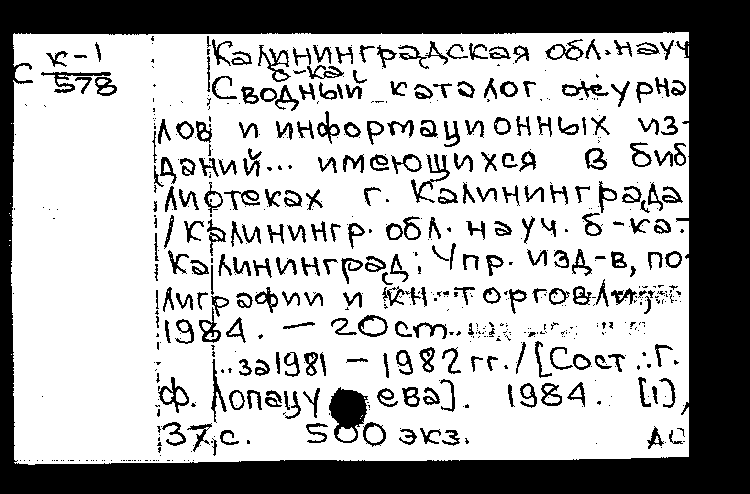 Калининградская обл. науч
б-ка.
С к-1
578
Сводный каталог журна
лов и информационных из-
даний... имеющихся в биб
лиотеках г. Калининграда
/ Калинингр. обл. науч. б-ка.
Калининград: Упр. изд-в, по-
лиграфии и кн. торговли,
1984. — 20 cm..
...за 1981 — 1982 гг. / [Сост.: Г.
Ф. Лопацу ева]. 1984. [1],
37, с. 500 экз.